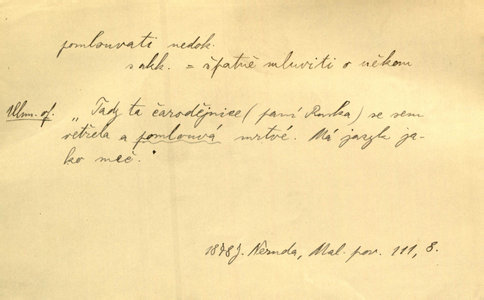 pomlouvati nedok.
s akk. = špatně mluviti o někom
„Tady ta čarodějnice (paní Ruska) se sem
vetřela a pomlouvá mrtvé. Má jazyk ja-
ko meč."
1878 J. Neruda, Mal. pov. 111, 8.